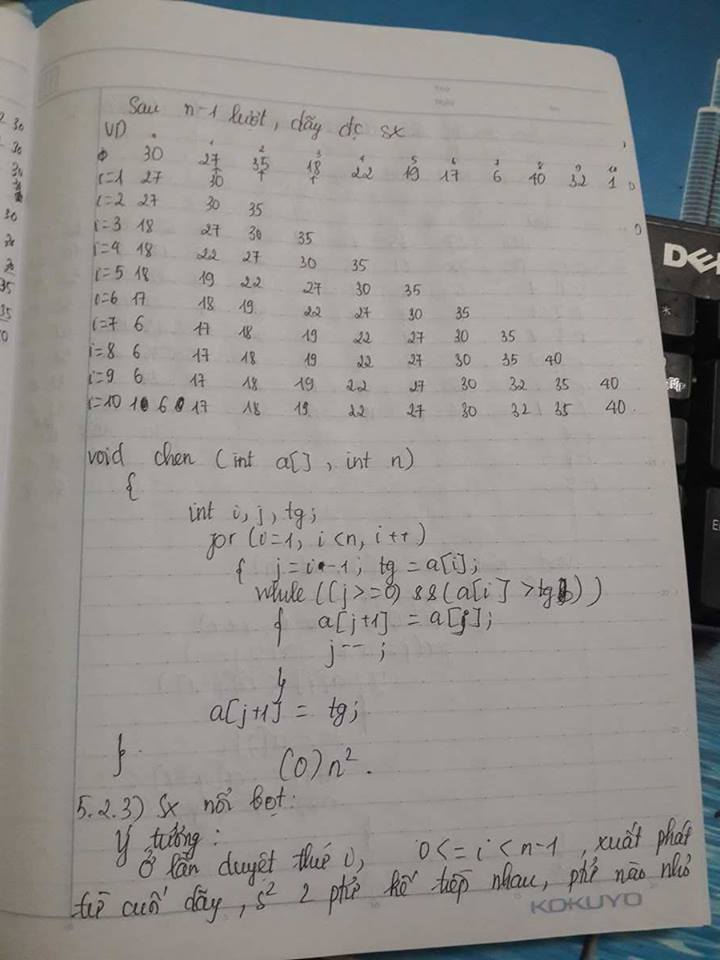 Sau n-1 lượt, dãy đc sx
VD
0 1 2 3 4 5 6 7 8 9 10
30 27 35 18 22 19 17 6 40 32 1
i=1 27 30
i=2 27 30 35
i=3 18 27 30 35
i=4 18 22 27 30 35
i=5 18 19 22 27 30 35
i=6 17 18 19 22 27 30 35
i=7 6 17 18 19 22 27 30 35
i=8 6 17 18 19 22 27 30 35 40
i=9 6 17 18 19 22 27 30 32 35 40
i=10 1 6 17 18 19 22 27 30 32 35 40
void chen (int a[], int n)
{
int i, j, tg;
for (i=1, i<n, i++)
{ j=i-1; tg = a[i];
while ((j>=0) && (a[i] > tg))
{ a[j+1] = a[j];
j--;
}
a[j+1] = tg;
}
(O)n².
5.2.3) Sx nổi bọt:
Ý tưởng:
Ở lần duyệt thứ i, 0<=i<n-1, xuất phát
từ cuối dãy, s² 2 ptử kế tiếp nhau, ptử nào nhỏ
KOKUYO
DEL